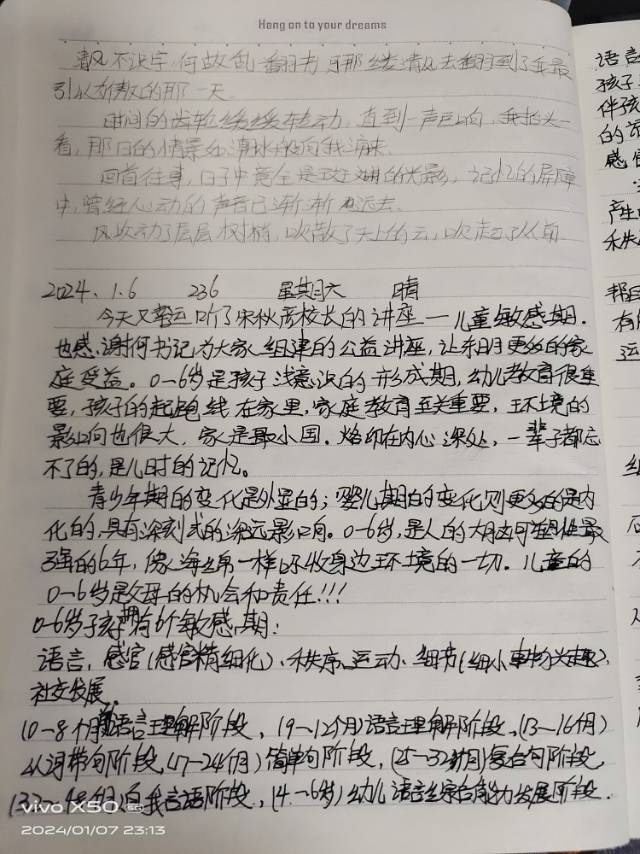 Hang on to your dreams
清风不识字,何故乱翻书,用那缕清风去翻到了我最
引以为傲的那一天
时间的齿轮缓缓转动,直到一声巨响,我抬头一
看,那日的情景如潮水般向我涌来
回首往事,日子中竟全是斑斓的光影,记忆的屏障
中,曾经心动的声音已渐渐远去
风吹动了层层树梢,吹散了天上的云,吹走了从前
2024.1.6 236 星期六 晴
今天又幸运听了宋秋彦校长的讲座一儿童敏感期.
也感谢何书记为大家组建的公益讲座,让来自更多的家
庭受益。0-6岁是孩子浅意识的形成期,幼儿教育很重
要,孩子的起跑线在家里,家庭教育至关重要,环境的
影响也很大,家是最小国。烙印在内心深处,一辈子都忘
不了的,是儿时的记忆。
青少年期的变化是外显的;婴儿期的变化则更多的是内
化的,具有深刻式的深远影响。0-6岁,是人的大脑可塑性最
强的6年,像海绵一样吸收身边环境的一切。儿童的
0-6岁是父母的机会和责任!!!
0-6岁孩子拥有6个敏感期:
语言,感官(感官精细化)、秩序、运动、细节(细小事物兴趣)、
社交发展.
(0-8个月)语言理解阶段,(9-12个月)语言理解阶段,(13-16个月)
以词带句阶段,(17-24个月)简单句阶段,(25-32个月)复合句阶段,
(33-48个月)自我言语阶段,(4-6岁)幼儿语言综合能力发展阶段.
语言
孩子
伴孩
的语
感官
产生
秩
帮
有
运
vivo X50
2024/01/07 23:13